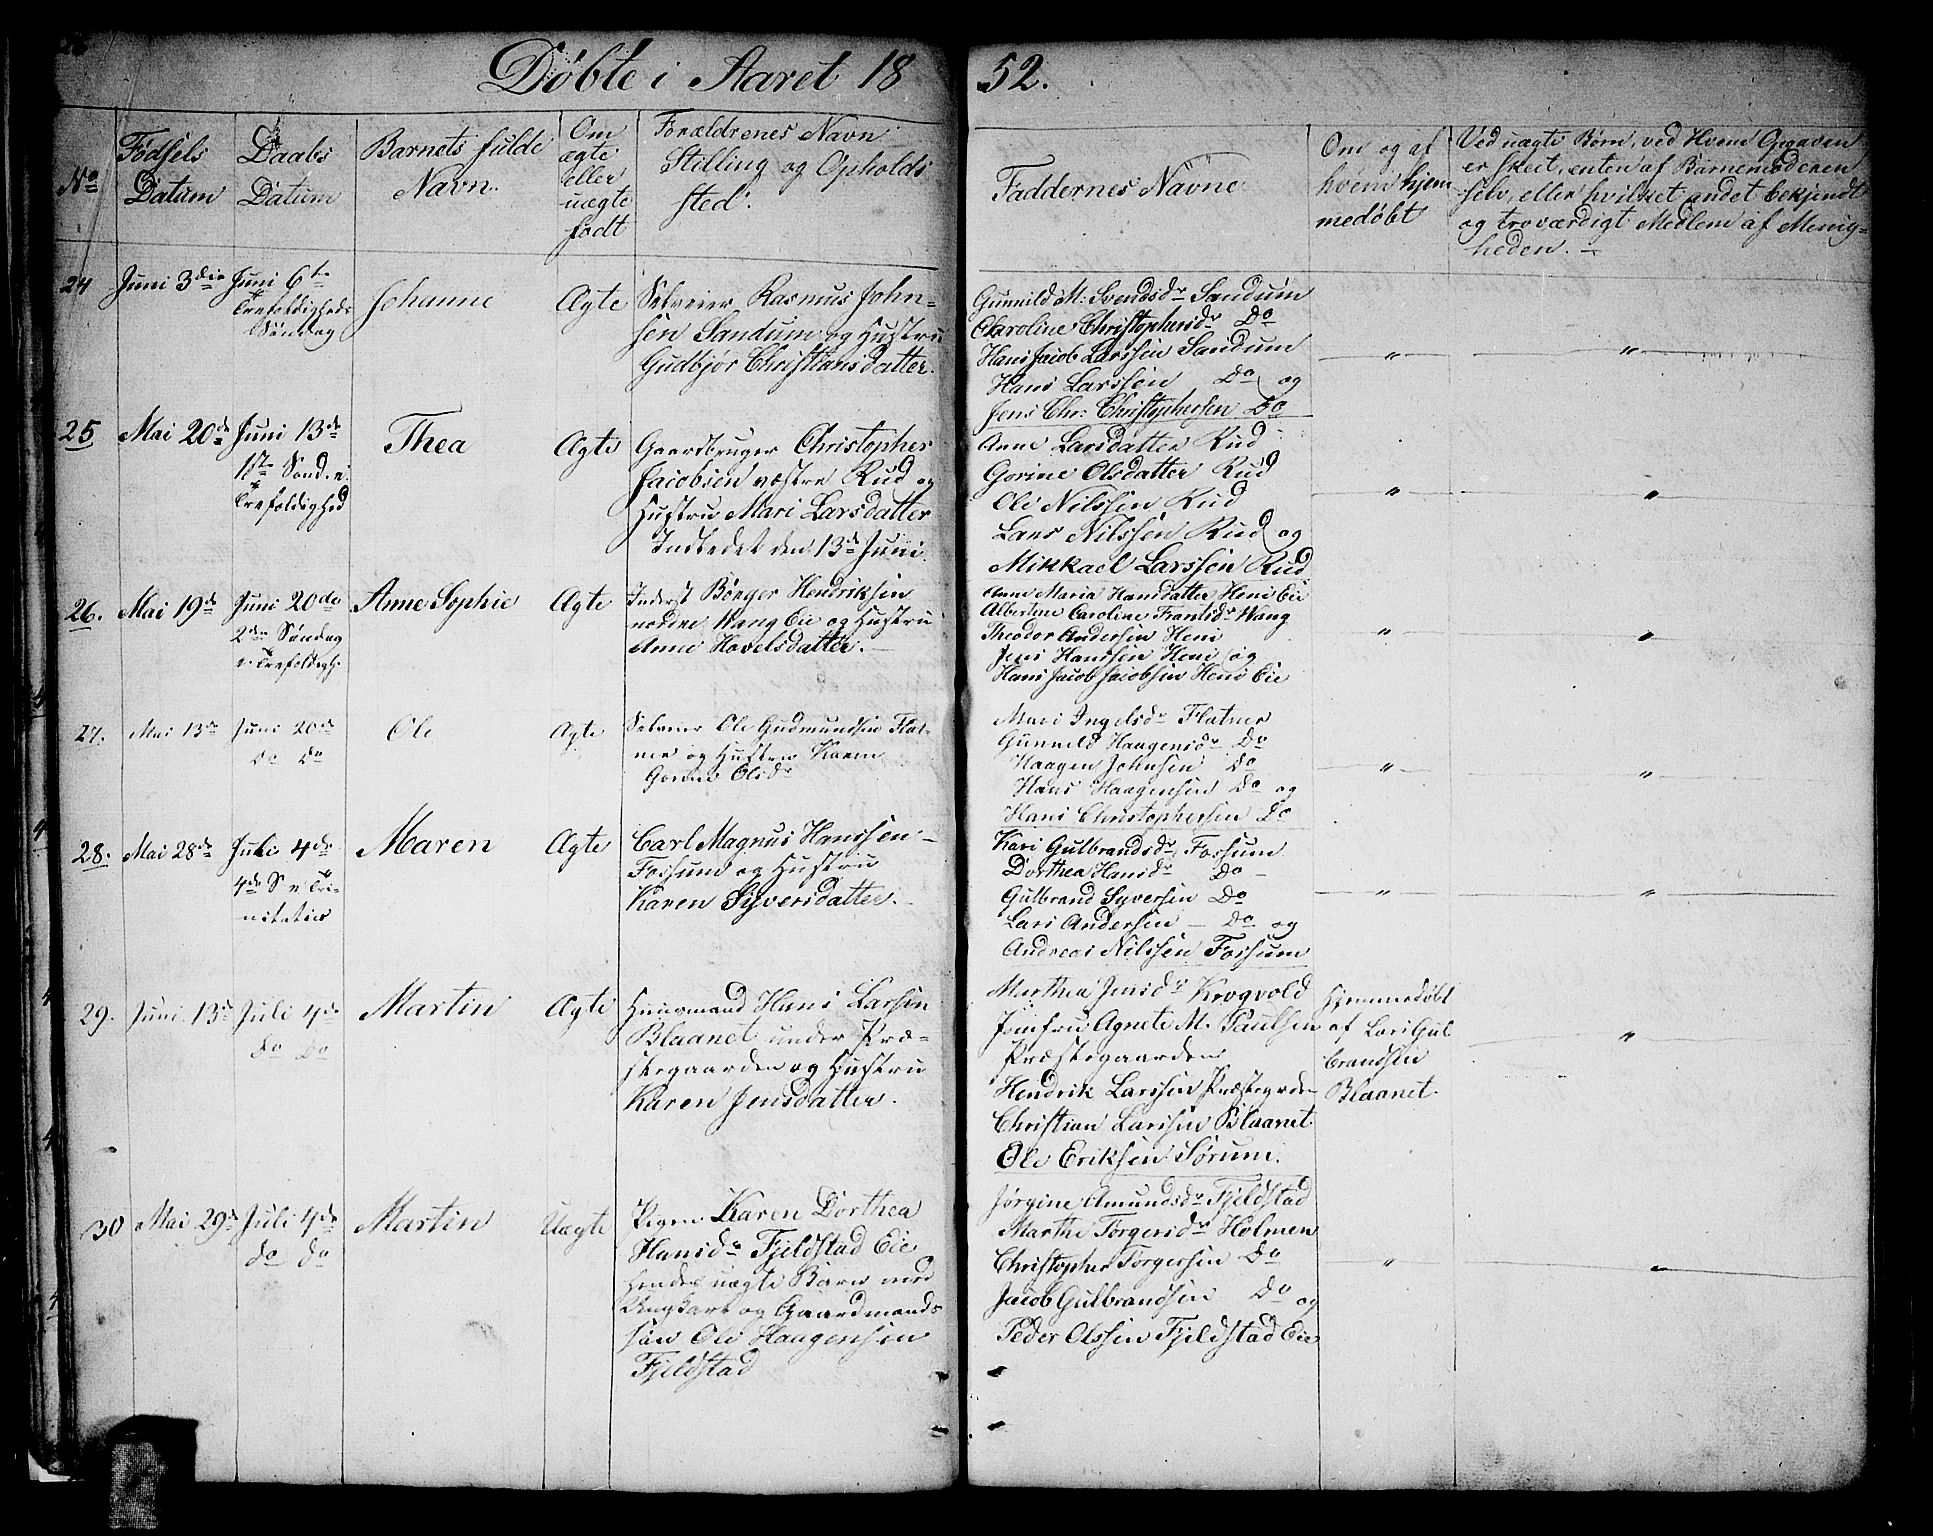 Døbte i Aaret 1852.
No
Fødsels
Datum
Daabs
Datum
Barnets fulde
Navn.
Om
ægte
eller
uægte
født
Forældrenes Navn
Stilling og Opholds
sted.
Faddernes Navne
Om og af
hvem hjem
medøbt
Ved uægte Børn, ved Hvem Opgaven
er skeet, enten af Barnemoderen
selv, eller hvilket andet bekjendt
og troværdigt Medlem af Menig-
heden. –
24
Juni 3die
Juni 6te
Trefoldigheds
Søndag
Johanne
Ægte
Selveier Rasmus John-
sen Sandum og Hustru
Gudbjør Christiansdatter.
Gunnild M: Svendsdr Sandum
Caroline Christophersdr Do
Hans Jacob Larssen Sandum
Hans Larssen Do og
Jens Chr: Christophersen Do
" "
25
Mai 20de
Juni 13de
1ste Sønd. e.
Trefoldighed
Thea
Ægte
Gaardbruger Christopher
Jacobsen væstre Rud og
Hustru Mari Larsdatter
Indledet den 13de Juni
Anne Larsdatter Rud
Gorine Olsdatter Rud
Ole Nilssen Rud
Lars Nilssen Rud og
Mikkael Larssen Rud
" "
26.
Mai 19de
Juni 20de
2den Søndag
e. Trefoldigh.
Anne Sophie
Ægte
Inderst Børger Hendriksen
nordre Wang Eie og Hustru
Anne Hovelsdatter. –
Anne Maria Hansdatter Heni Eie
Albertine Caroline Frantsdr Wang
Theodor Andersen Heni
Jens Hanssen Heni og
Hans Jacob Jacobsen Heni Eie
" "
27.
Mai 13de
Juni 20de
do do
Ole
Ægte
Selveier Ole Gudmundsen Flat-
ner og Hustru Karen
Gorine Olsdr
Mari Ingelsdr Flatner
Gunneld Haagensdr Do
Haagen Johnsen Do
Hans Haagensen Do og
Hans Christophersen Do
" "
28.
Mai 28de
Juli 4de
4de S e Tri-
nitatis
Maren
Ægte
Carl Magnus Hanssen –
Fossum og Hustru
Karen Syversdatter. –
Kari Gulbrandsdr Fossum
Dorthea Hansdr Do –
Gulbrand Syversen Do
Lars Andersen – Do og
Andreas Nilssen Fossum
" "
29.
Juni 13de
Juli 4de
do do
Martin
Ægte
Huusmand Hans Larsen
Blaanet under Præ-
stegaarden og Hustru
Karen Jensdatter.
Marthea Jensdr Krogvold
Jomfru Agnete M. Paulsen
Præstegaarden
Hendrik Larssen Præstegrden
Christian Larssen Blaanet.
Ole Eriksen Sørum.
Hjemmedøbt
af Lars Gul
brandsen
Blaanet.
"
30
Mai 29de
Juli 4de
do do
Martin
Uægte
Pigen Karen Dorthea
Hansdr Fjeldstad Eie
hendes uægte Barn med
Ungkarl og Gaardmands
søn Ole Haagensen
Fjeldstad
Jørgine Amundsdr Fjeldstad
Marthe Torgersdr Holmen
Christopher Torgersen Do
Jacob Gulbrandsen Do og
Peder Olssen Fjeldstad Eie
"